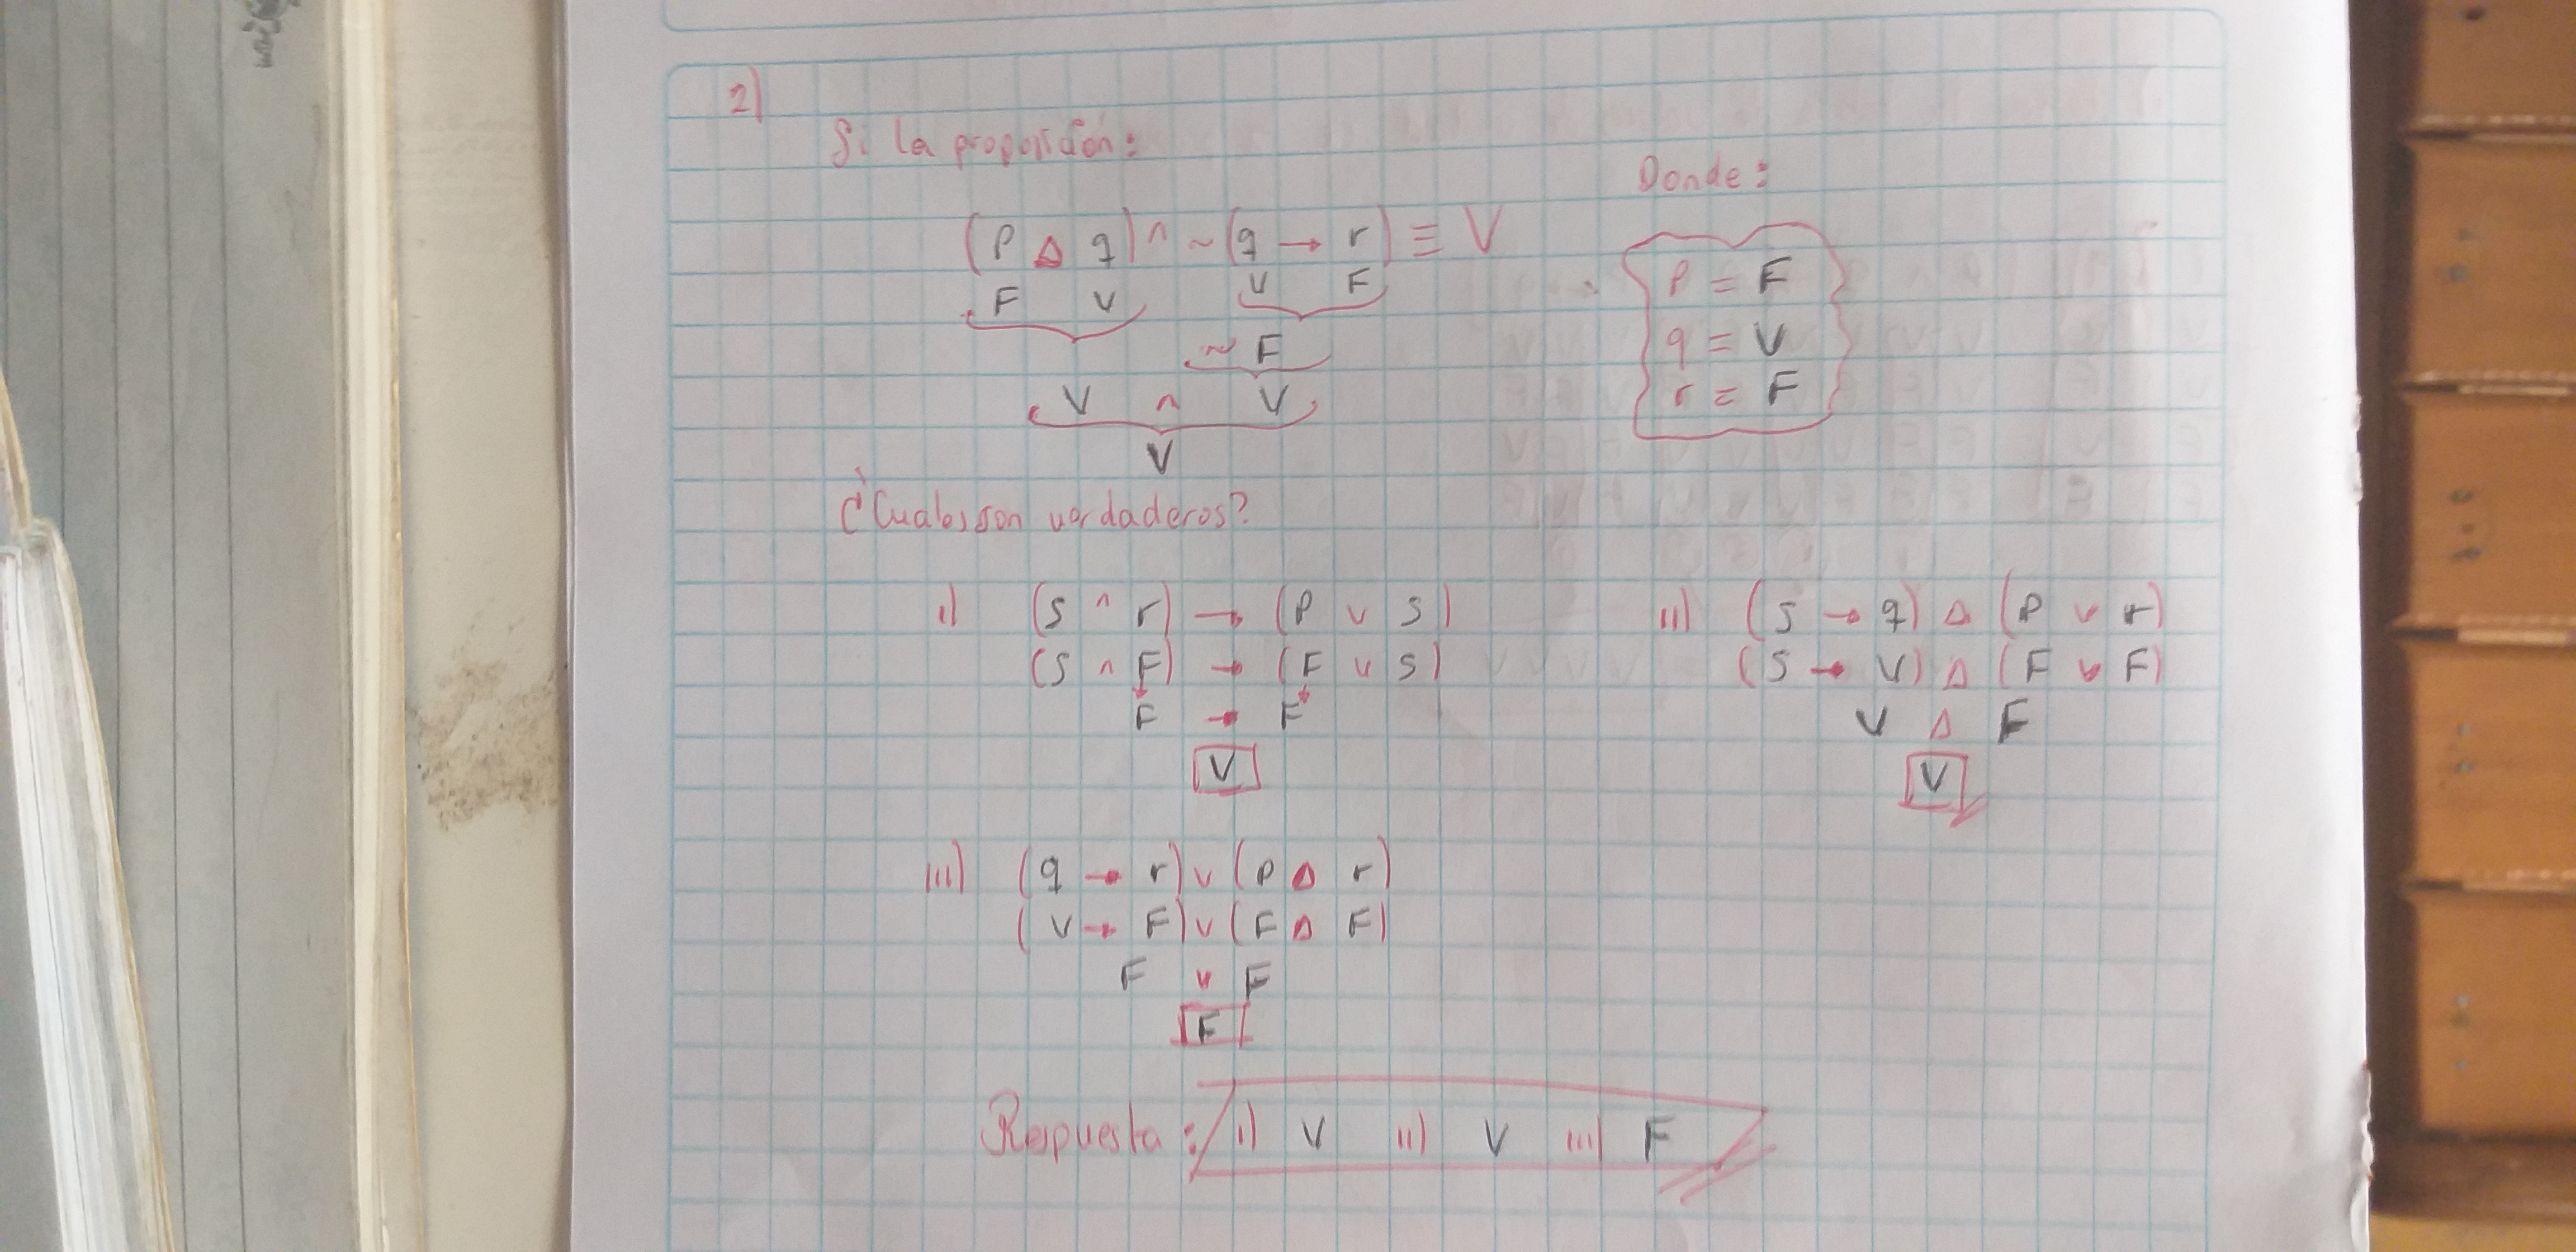 2)
Si la proposición:
(p Δ q) ∧ ~(q → r) ≡ V
F V V F
~ F
V ∧ V
V
Donde:
p = F
q = V
r = F
¿Cuales son verdaderos?
I) (S ∧ r) → (P ∨ S)
(S ∧ F) → (F ∨ S)
F → F
V
II) (S → q) Δ (P ∨ r)
(S → V) Δ (F ∨ F)
V Δ F
V
III) (q → r) ∨ (p Δ r)
(V → F) ∨ (F Δ F)
F ∨ F
F
Respuesta: I) V II) V III) F